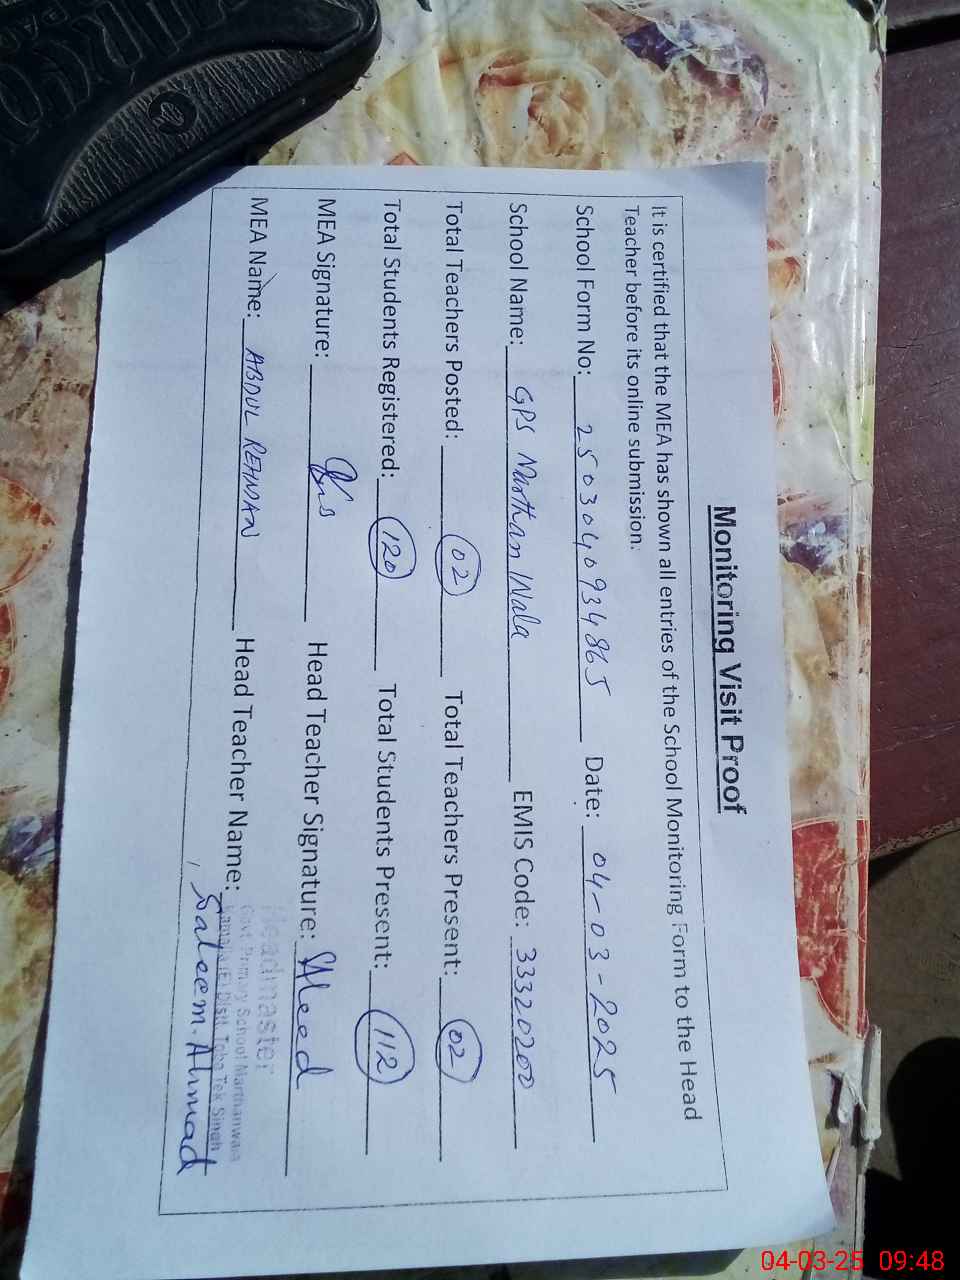 Monitoring Visit Proof
It is certified that the MEA has shown all entries of the School Monitoring Form to the Head
Teacher before its online submission.
School Form No: 2503040934865 Date: 04-03-2025
School Name: GPS Marthan Wala EMIS Code: 33320200
Total Teachers Posted: 02 Total Teachers Present: 02
Total Students Registered: 120 Total Students Present: 112
MEA Signature: Head Teacher Signature:
MEA Name: ABDUL REHMAN Head Teacher Name: Saleem Ahmad
Headmaster
Govt. Primary School Marthanwala
Kamalia (E) Distt. Toba Tek Singh
04-03-25 09:48